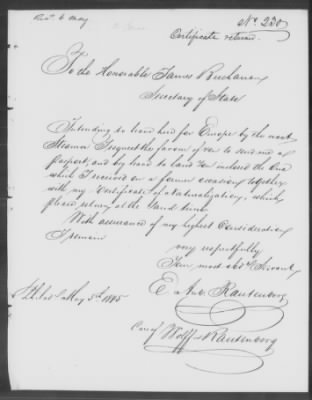 Rec'd 6 May
No 220
Certificate return.
To the Honorable James Buchanan
Secretary of State
Intending to leave here for Europe by the next
Steamer I request the favor of you to send me a
pasport, and by leave to hand you inclosed the One
which I received on a former occasion, together
with my Certificate of Naturalization, which
please return at the same time.
With assurance of my highest Consideration
I remain
very respectfully
Your most obd Servant
Rautenberg
Philad. May 5th 1845
Care of Wolff & Rautenberg